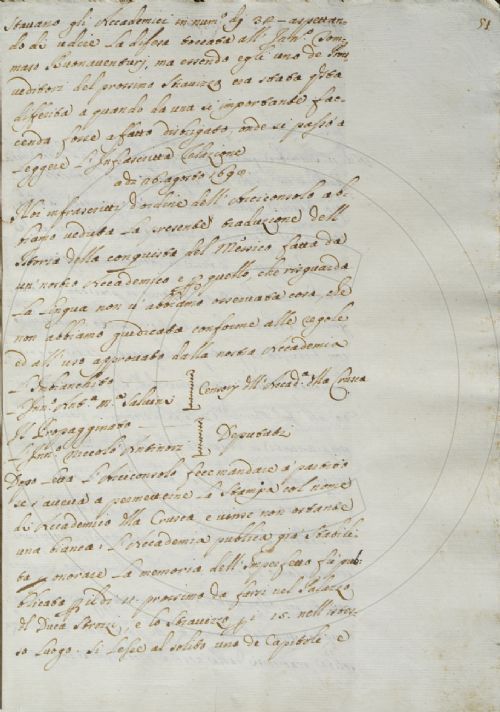 51
Stavano gli Accademici in num.º di 38 - aspettan-
do di udire la difesa toccata all' Inn.º Tom-
maso Buonaventurj, ma essendo egli uno de Prov-
veditori del prossimo Stravizzo era stata q.sta
differita a quando da una sì importante fac-
cenda fosse affatto disbrigato, onde si passò a
leggere l'Infrascritta Relazione
adì agosto 169
Noi infrascritti d'ordine dell' Arciconsolo ab-
biamo veduta la presente traduzione dell'
Istoria della conquista del Messico fatta da
un nostro Accademico e p quello che risguarda
la lingua non v' abbiamo osservata cosa, che
non abbiamo giudicata conforme alle regole
ed all' uso approvato della nostra Accademia
L'Intronchito
L'Inn.º Ant.º M.ª Salvini
Censorj dell' Accad.ª della Crusca
Il Propagginato
L'Inn.º Niccolò Antinori
Deputati
Dopo letta l'Arciconsolo fece mandare a partito
se s'aveva a permetterne la stampa col nome
di Accademico della Crusca e vinse non ostante
una bianca: l'Accademia publica già stabili-
ta p onorare la memoria dell' Imperfetto fu pub-
blicata p il dì prossimo da farsi nel Palazzo
del Duca Strozzi, e lo Stravizzo p i 15. nell' istes-
so luogo. Si lesse al solito uno de Capitoli e